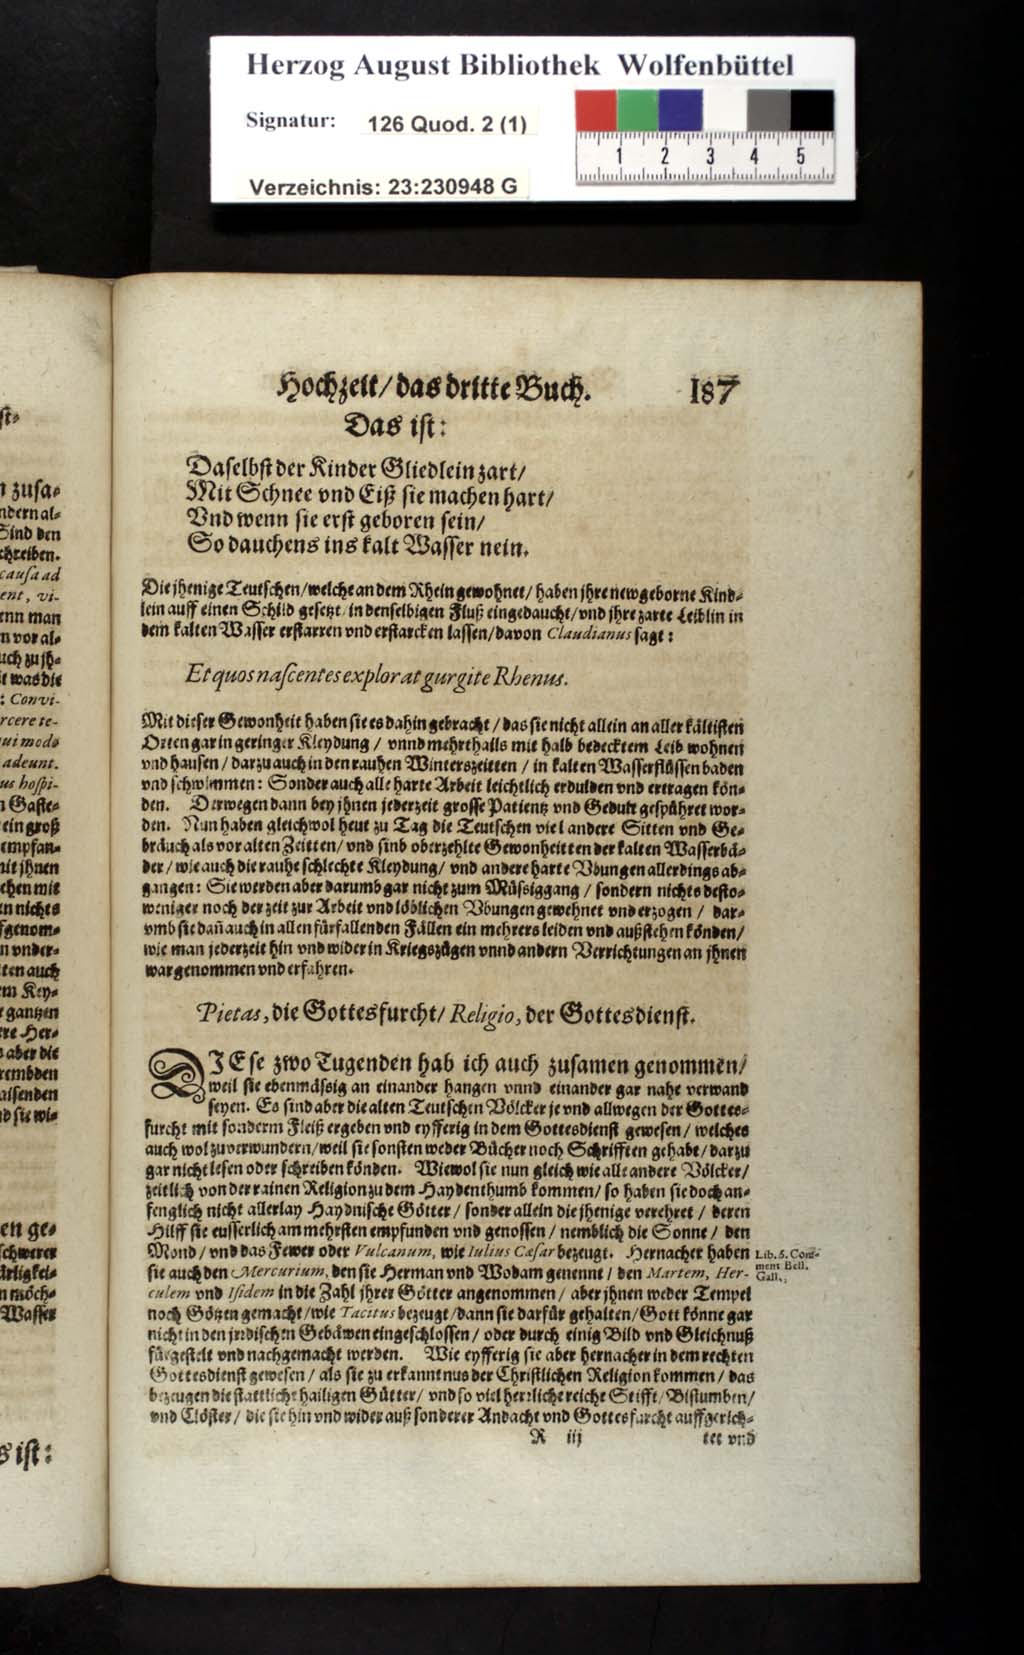 Herzog August Bibliothek Wolfenbüttel
Signatur: 126 Quod. 2 (1)
1 2 3 4 5
Verzeichnis: 23:230948 G
Hochzeit/ das dritte Buch. 187
Das ist:
Daselbst der Kinder Gliedlein zart/
Mit Schnee vnd Eiß sie machen hart/
Vnd wenn sie erst geboren sein/
So dauchens ins kalt Wasser nein.
Die jhenige Teutschen/ welche an dem Rhein gewohnet/ haben jhre newgeborne Kind-
lein auff einen Schild gesetzt/ in denselbigen Fluß eingedaucht/ vnd jhre zarte Leiblin in
dem kalten Wasser erstarren vnd erstarcken lassen/ davon Claudianus sagt:
Et quos nascentes explorat gurgite Rhenus.
Mit dieser Gewonheit haben sie es dahin gebracht/ das sie nicht allein an aller kältisten
Orten gar in geringer Kleydung/ vnnd mehrthails mit halb bedecktem Leib wohnen
vnd hausen/ darzu auch in den rauhen Winterszeitten/ in kalten Wasserflüssen baden
vnd schwimmen: Sonder auch alle harte Arbeit leichtlich erdulden vnd ertragen kön-
den. Derwegen dann bey jhnen jederzeit grosse Patientz vnd Gedult gespühret wor-
den. Nun haben gleichwol heut zu Tag die Teutschen viel andere Sitten vnd Ge-
bräuch als vor alten Zeitten/ vnd sind oberzehlte Gewonheitten der kalten Wasserbä-
der/ wie auch die rauhe schlechte Kleydung/ vnd andere harte Vbungen allerdings ab-
gangen: Sie werden aber darumb gar nicht zum Müssiggang/ sondern nichts desto-
weniger noch der zeit zur Arbeit vnd löblichen Vbungen gewehnet vnd erzogen/ dar-
vmb sie dañ auch in allen fürfallenden Fällen ein mehrers leiden vnd außstehen könden/
wie man jederzeit hin vnd wider in Kriegszügen vnnd andern Verrichtungen an jhnen
wargenommen vnd erfahren.
Pietas, die Gottesfurcht/ Religio, der Gottesdienst.
DIEse zwo Tugenden hab ich auch zusamen genommen/
weil sie ebenmässig an einander hangen vnnd einander gar nahe verwand
seyen. Es sind aber die alten Teutschen Völcker je vnd allwegen der Gottes-
furcht mit sonderm Fleiß ergeben vnd eyfferig in dem Gottesdienst gewesen/ welches
auch wol zuverwundern/ weil sie sonsten weder Bücher noch Schrifften gehabt/ darzu
gar nicht lesen oder schreiben könden. Wiewol sie nun gleich wie alle andere Völcker/
zeitlich von der rainen Religion zu dem Haydenthumb kommen/ so haben sie doch an-
fenglich nicht allerlay Haydnische Götter/ sonder allein die jhenige verehret/ deren
Hilff sie eusserlich am mehrsten empfunden vnd genossen/ nemblich die Sonne/ den
Mond/ vnd das Fewer oder Vulcanum, wie Iulius Cæsar bezeugt. Hernacher haben
sie auch den Mercurium, den sie Herman vnd Wodam genennt/ den Martem, Her-
culem vnd Isidem in die Zahl jhrer Götter angenommen/ aber jhnen weder Tempel
noch Götzen gemacht/ wie Tacitus bezeugt/ dann sie darfür gehalten/ Gott könne gar
nicht in den jrdischen Gebäwen eingeschlossen/ oder durch einig Bild vnd Gleichnuß
fürgestelt vnd nachgemacht werden. Wie eyfferig sie aber hernacher in dem rechten
Gottesdienst gewesen/ als sie zu erkanntnus der Christlichen Religion kommen/ das
bezeugen die stattliche hailigen Gütter/ vnd so viel herrliche reiche Stifft/ Bistumben/
vnd Clöster/ die sie hin vnd wider auß sonderer Andacht vnd Gottesfurcht auffgerich-
R iij tet vnd
Lib. 6. Com-
ment Bell.
Gall.
st-
n zusa-
ndern al-
Sind den
chreiben.
causa ad
ent, vi-
enn man
n vor al-
uch zu jh-
t was die
: Convi-
rcere te-
qui modo
adeunt.
us hospi-
n Gaste-
ein groß
empfan-
nit jhnen
chen mit
en nichts
fgenom-
n vnder-
ten auch
em Key-
gantzen
re Her-
s aber die
rembden
aisenden
d sie wi-
en ge-
schwerer
n möch-
Wasser
s ist: